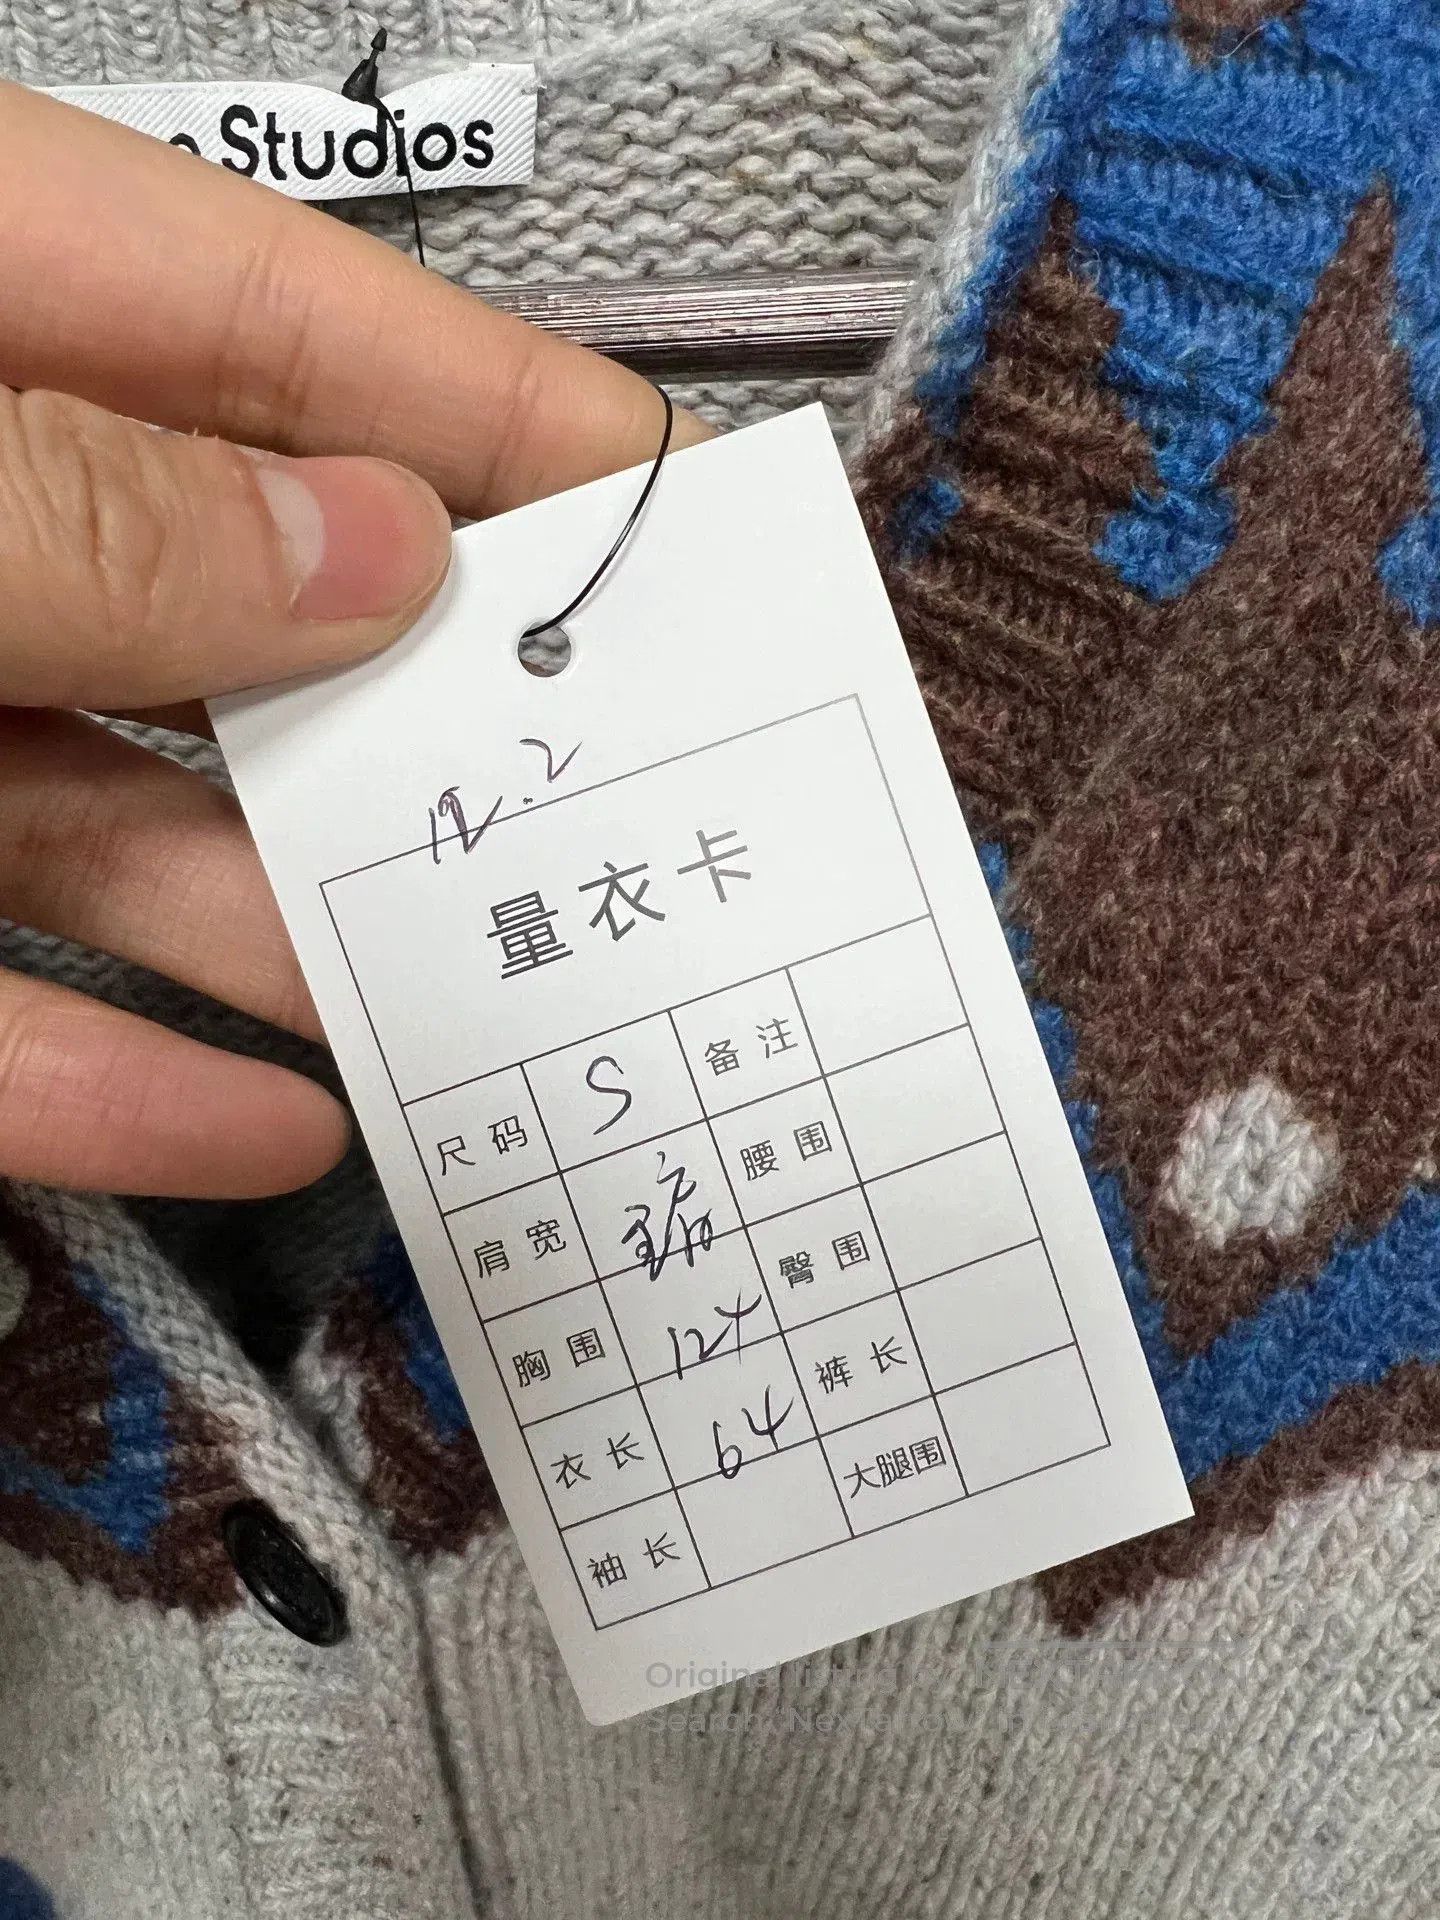 Studios
12.2
量衣卡
尺码 S 备注
肩宽 腰围
胸围 124 臀围
衣长 64 裤长
袖长 大腿围
Original listing by
Search